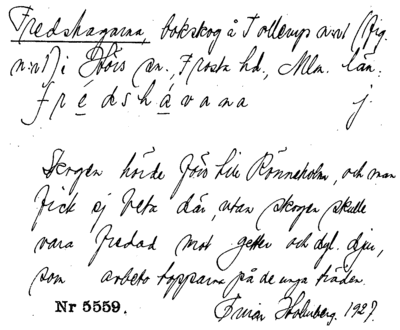 Fredshagarna, bokskog å Tollerup n:r 1 (Fig.
n:r 1) i Hörs sn., Frosta hd., Mlm. län.
frédshávana j.
Skogen hörde förr till Rönneholm, och man
fick ej beta där, utan skogen skulle
vara fredad mot getter och dyl. djur,
som arbeto topparna på de unga träden.
Nr 5559. Holmberg. 1927.